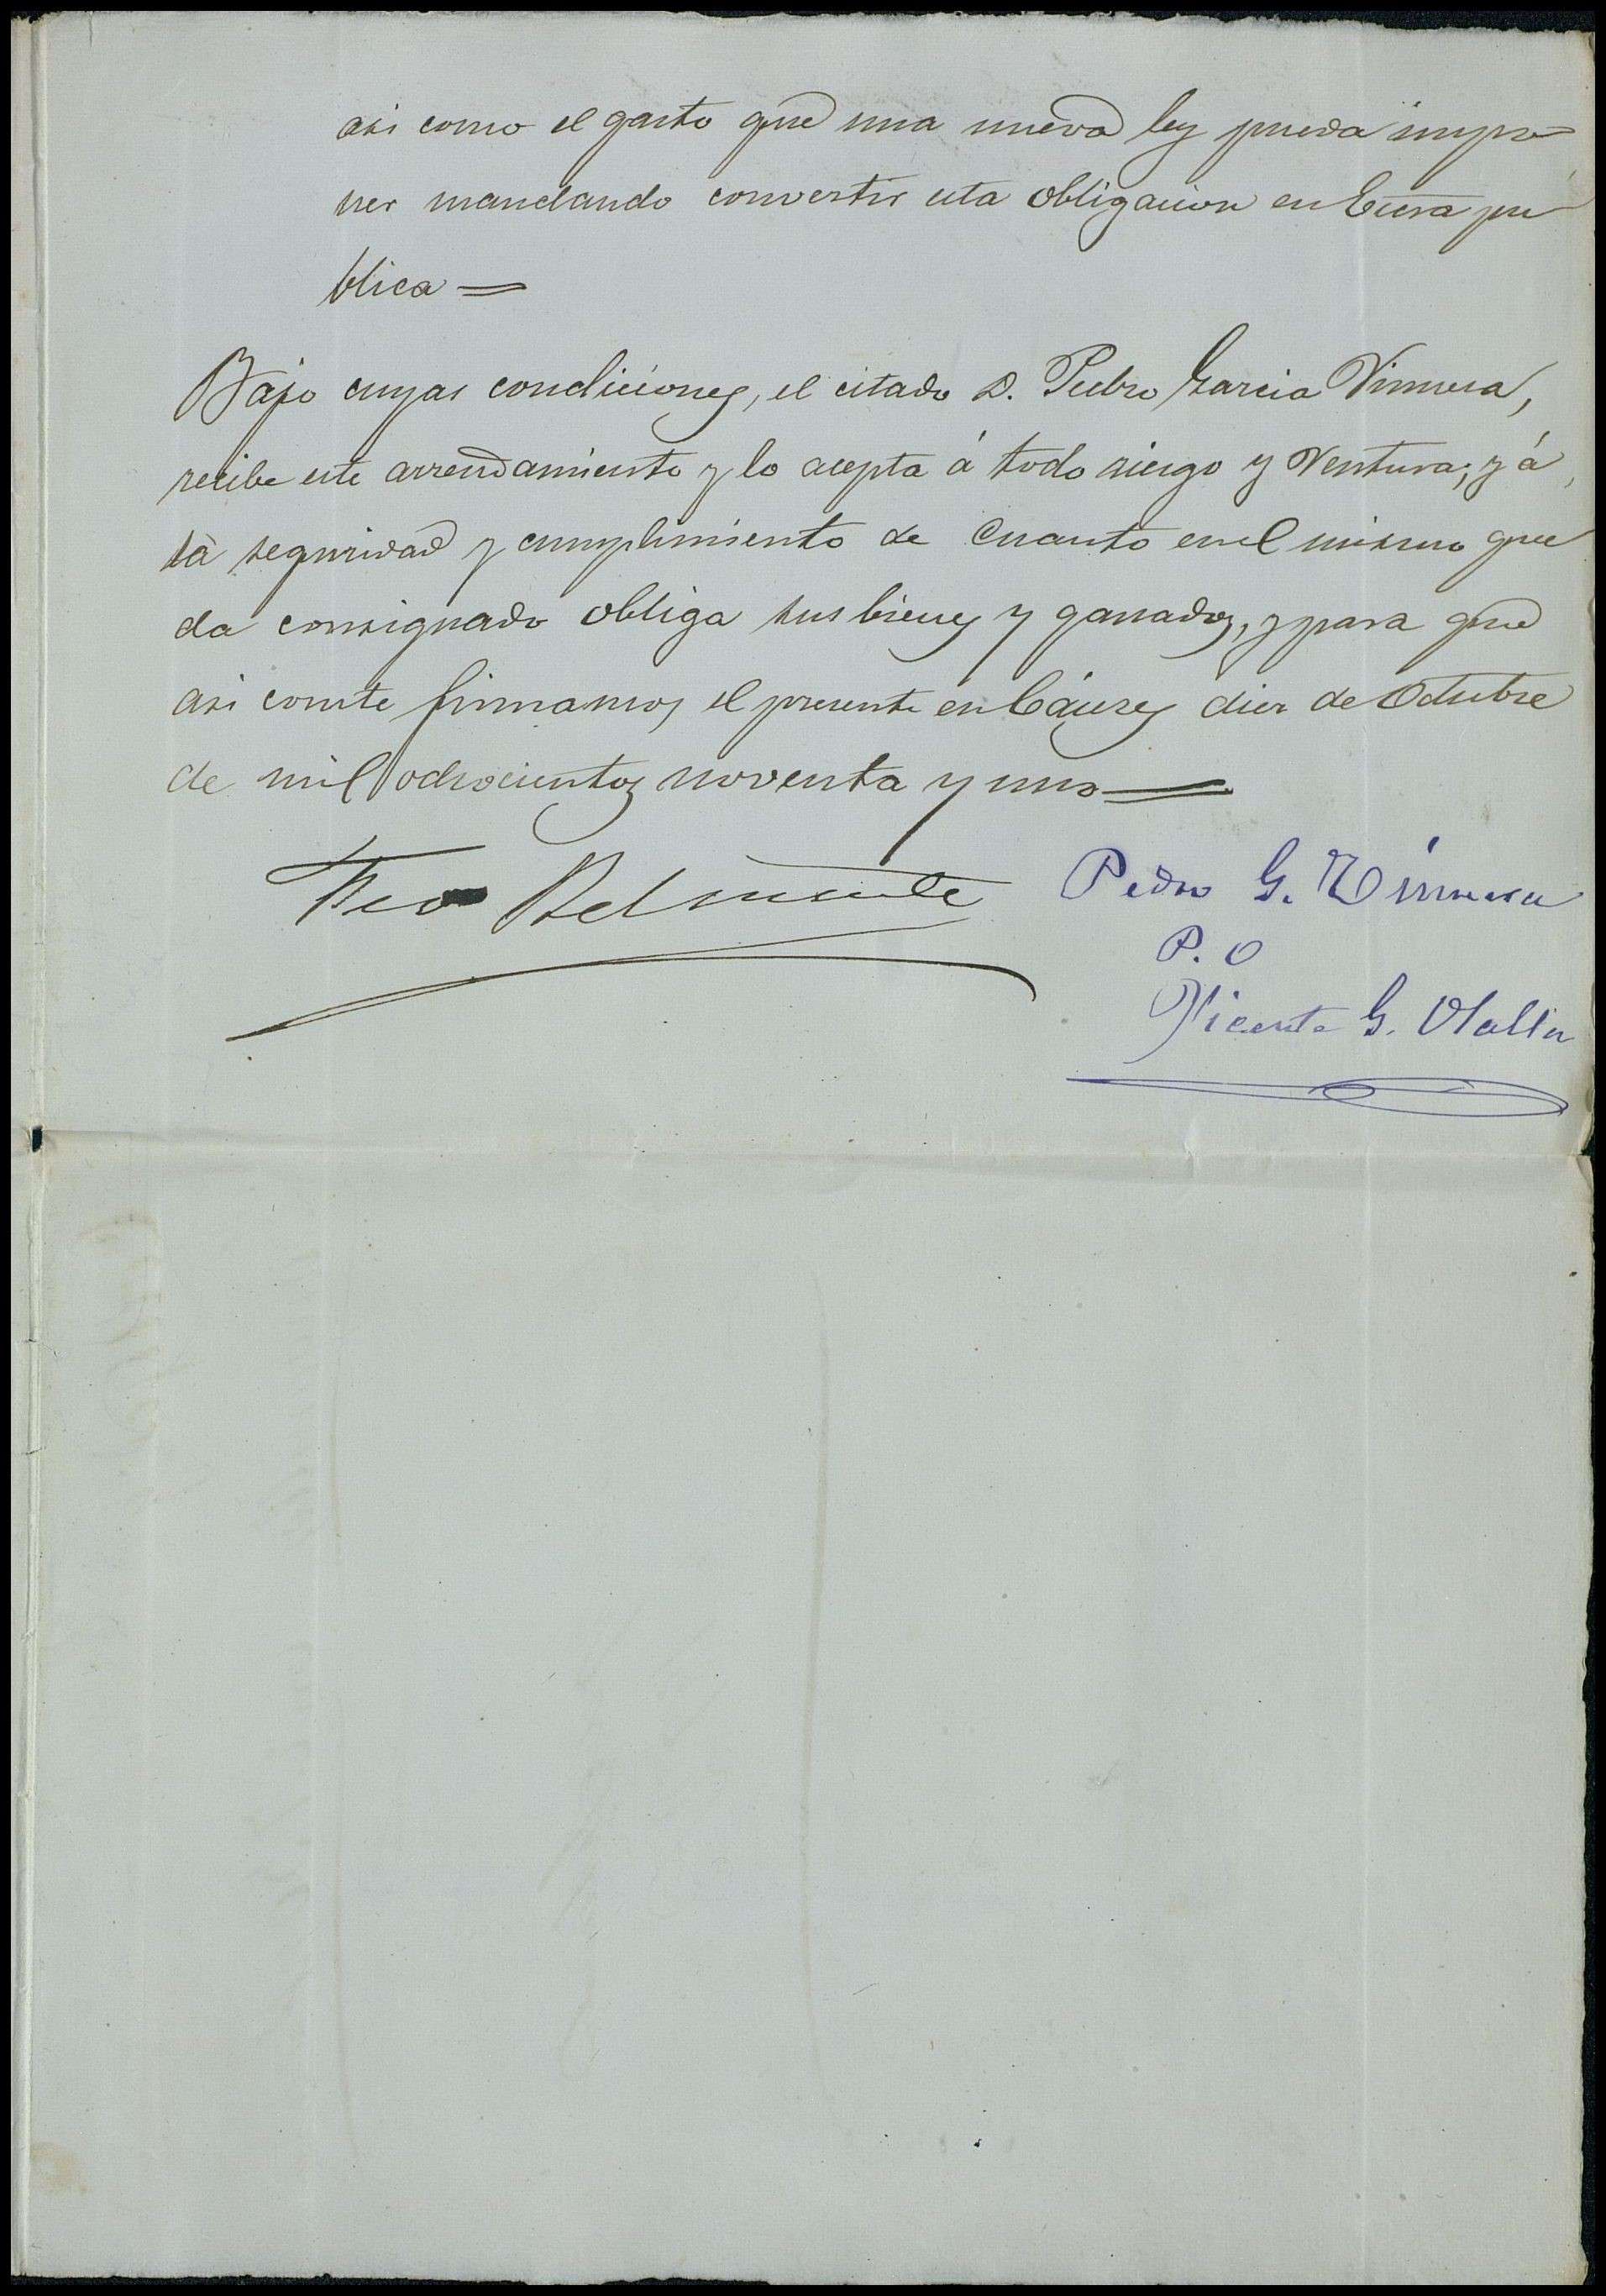 asi como el gasto que una nueva ley pueda impo
ner mandando convertir esta obligacion en Escra pu
blica =
Bajo cuyas condiciones, el citado D. Pedro Garcia Vinuesa,
recibe este arrendamiento y lo acepta á todo riesgo y Ventura; y á
la seguridad y cumplimiento de Cuanto en el mismo que
da consignado obliga sus bienes y ganados, y para que
asi conste firmamos el presente en Cáceres diez de Octubre
de mil ochocientos noventa y uno =
Belmonte
Pedro G. Vinuesa
P. O
Vicente G. Olalla